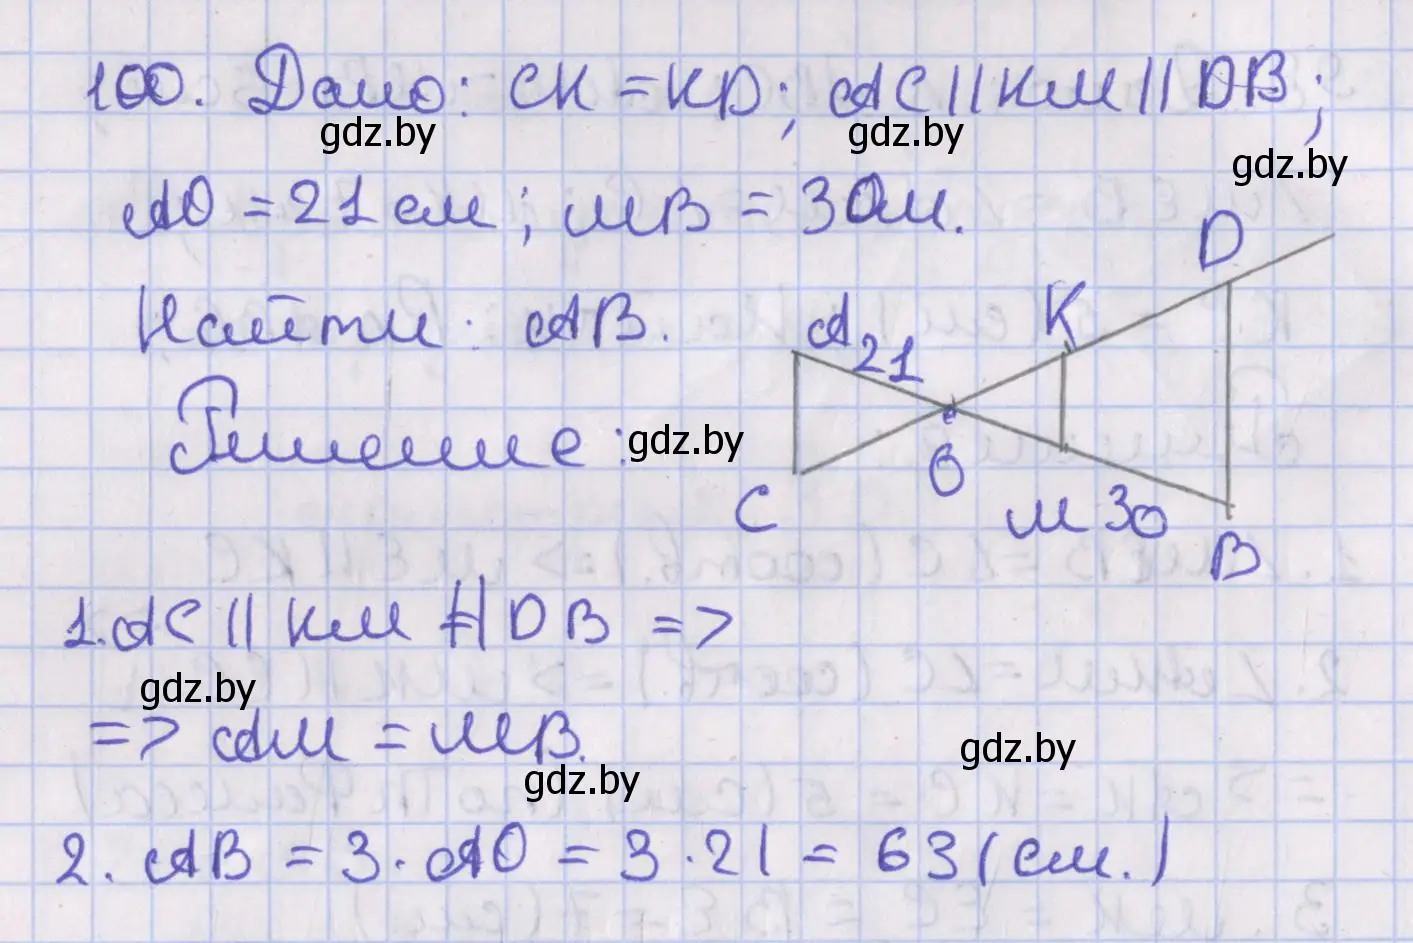 100. Дано: CK = KD; AC || KM || DB;
gdz.by gdz.by gdz.by
AO = 21 см; MB = 30м.
D
Найти: AB. A 21 K
Решение: gdz.by
O
C M 30
B
1. AC || KM || DB =>
gdz.by
=> AM = MB.
gdz.by
gdz.by
2. AB = 3 · AO = 3 · 21 = 63 (см.)